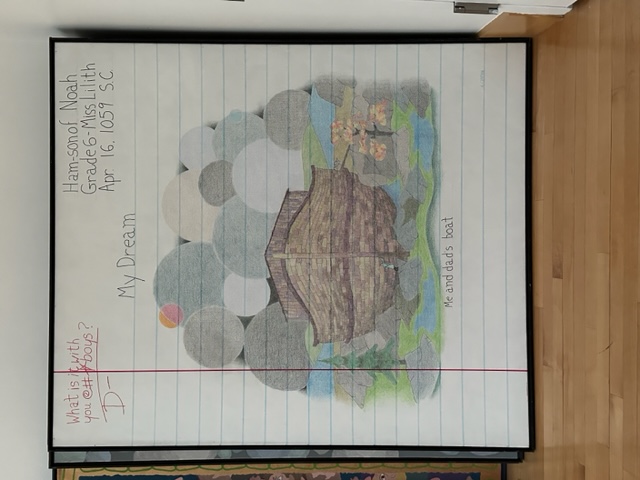 What is it with
you @##*boys?
D-
Ham-son of Noah
Grade 6-Miss Lilith
Apr 16, 1059 S.C
My Dream
Me and dad's boat